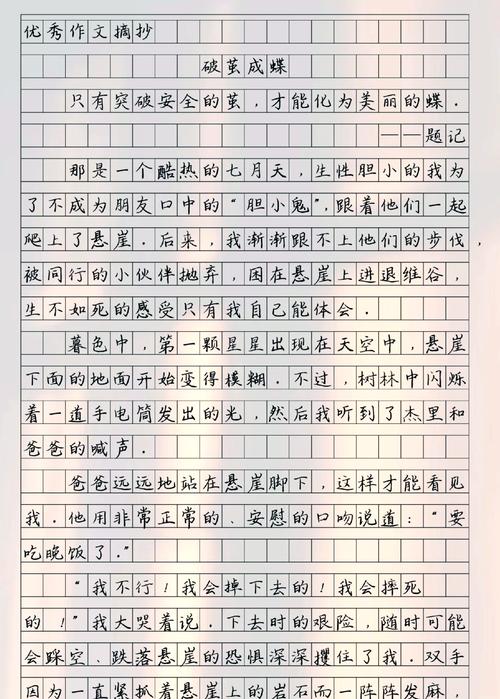 优秀作文摘抄
破茧成蝶
只有突破安全的茧，才能化为美丽的蝶．
——题记
那是一个酷热的七月天，生性胆小的我为
了不成为朋友口中的“胆小鬼”，跟着他们一起
爬上了悬崖．后来，我渐渐跟不上他们的步伐，
被同行的小伙伴抛弃，困在悬崖上进退维谷，
生不如死的感受只有我自己能体会．
暮色中，第一颗星星出现在天空中，悬崖
下面的地面开始变得模糊．不过，树林中闪烁
着一道手电筒发出的光，然后我听到了杰里和
爸爸的喊声．
爸爸远远地站在悬崖脚下，这样才能看见
我．他用非常正常的、安慰的口吻说道：“要
吃晚饭了．”
“我不行！我会掉下去的！我会摔死
的！”我大哭着说．下去时的艰险，随时可能
会踩空、跌落悬崖的恐惧深深攫住了我．双手
因为一直紧抓着悬崖上的岩石而一阵阵发麻，